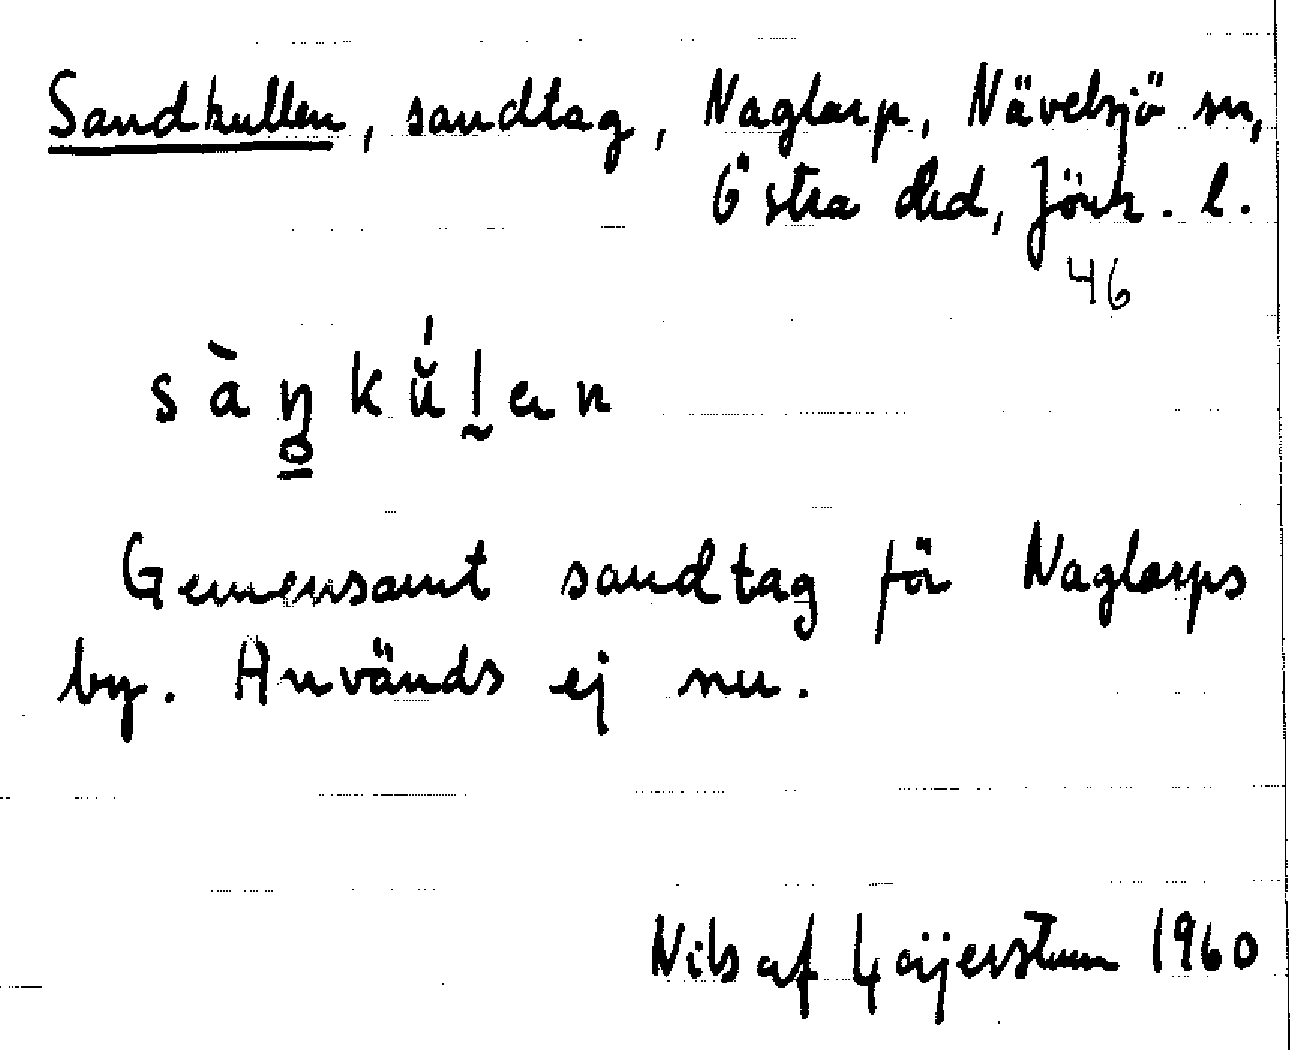 Sandkullen, sandtag, Naglarp, Nävelsjö sn,
Östra hd, Jönk. l.
46
sàŋkŭ́lan
Gemensamt sandtag för Naglarps
by. Används ej nu.
Nils af Geijerstam 1960